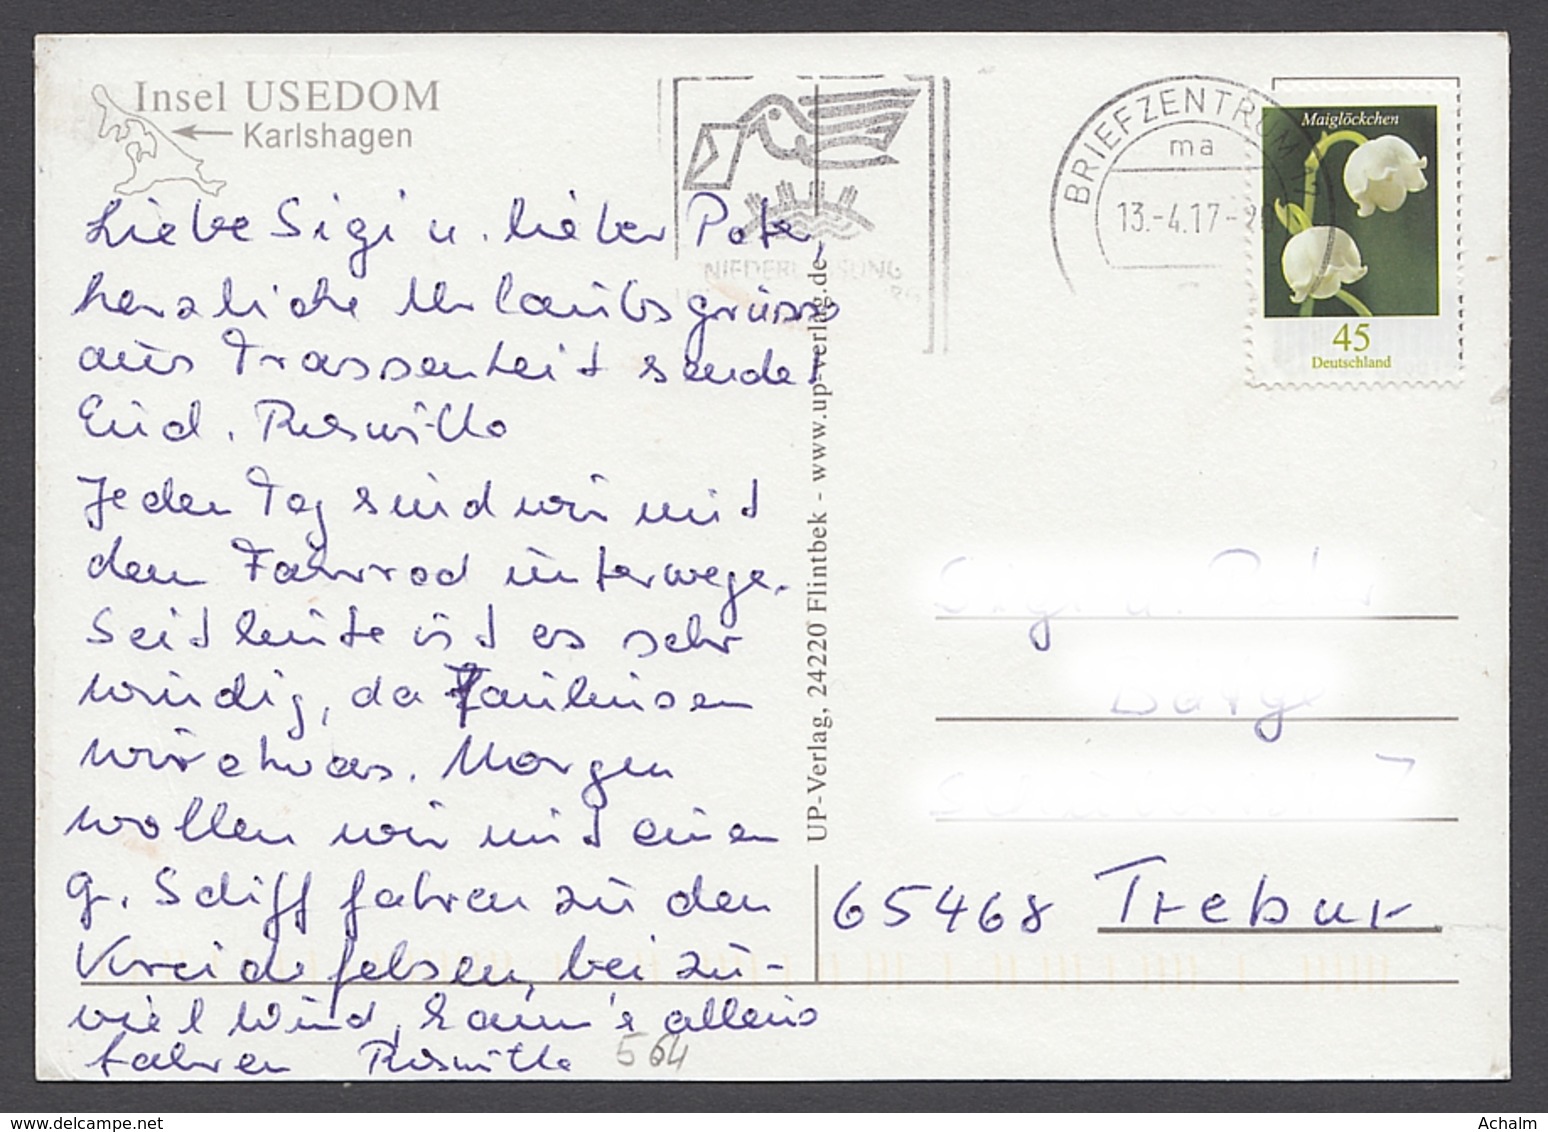 Insel USEDOM
Karlshagen
Liebe Sigi u. lieber Peter,
herzliche Urlaubsgrüsse
aus Trassenheit sendet
Euch.
Jeden Tag sind wir mit
dem Fahrrad unterwegs.
Seit heute ist es sehr
windig, da faulensen
wir etwas. Morgen
wollen wir mit einem
g. Schiff fahren zu den
Kreidefelsen, bei zu-
viel Wind, kann's allein
fahren
564
UP-Verlag, 24220 Flintbek - www.up-verlag.de
NIEDERLASSUNG
BRIEFZENTRUM
ma
13.-4.17-20
Maiglöckchen
45
Deutschland
Sigi u. Peter
65468 Trebur
www.delcampe.net
Achalm